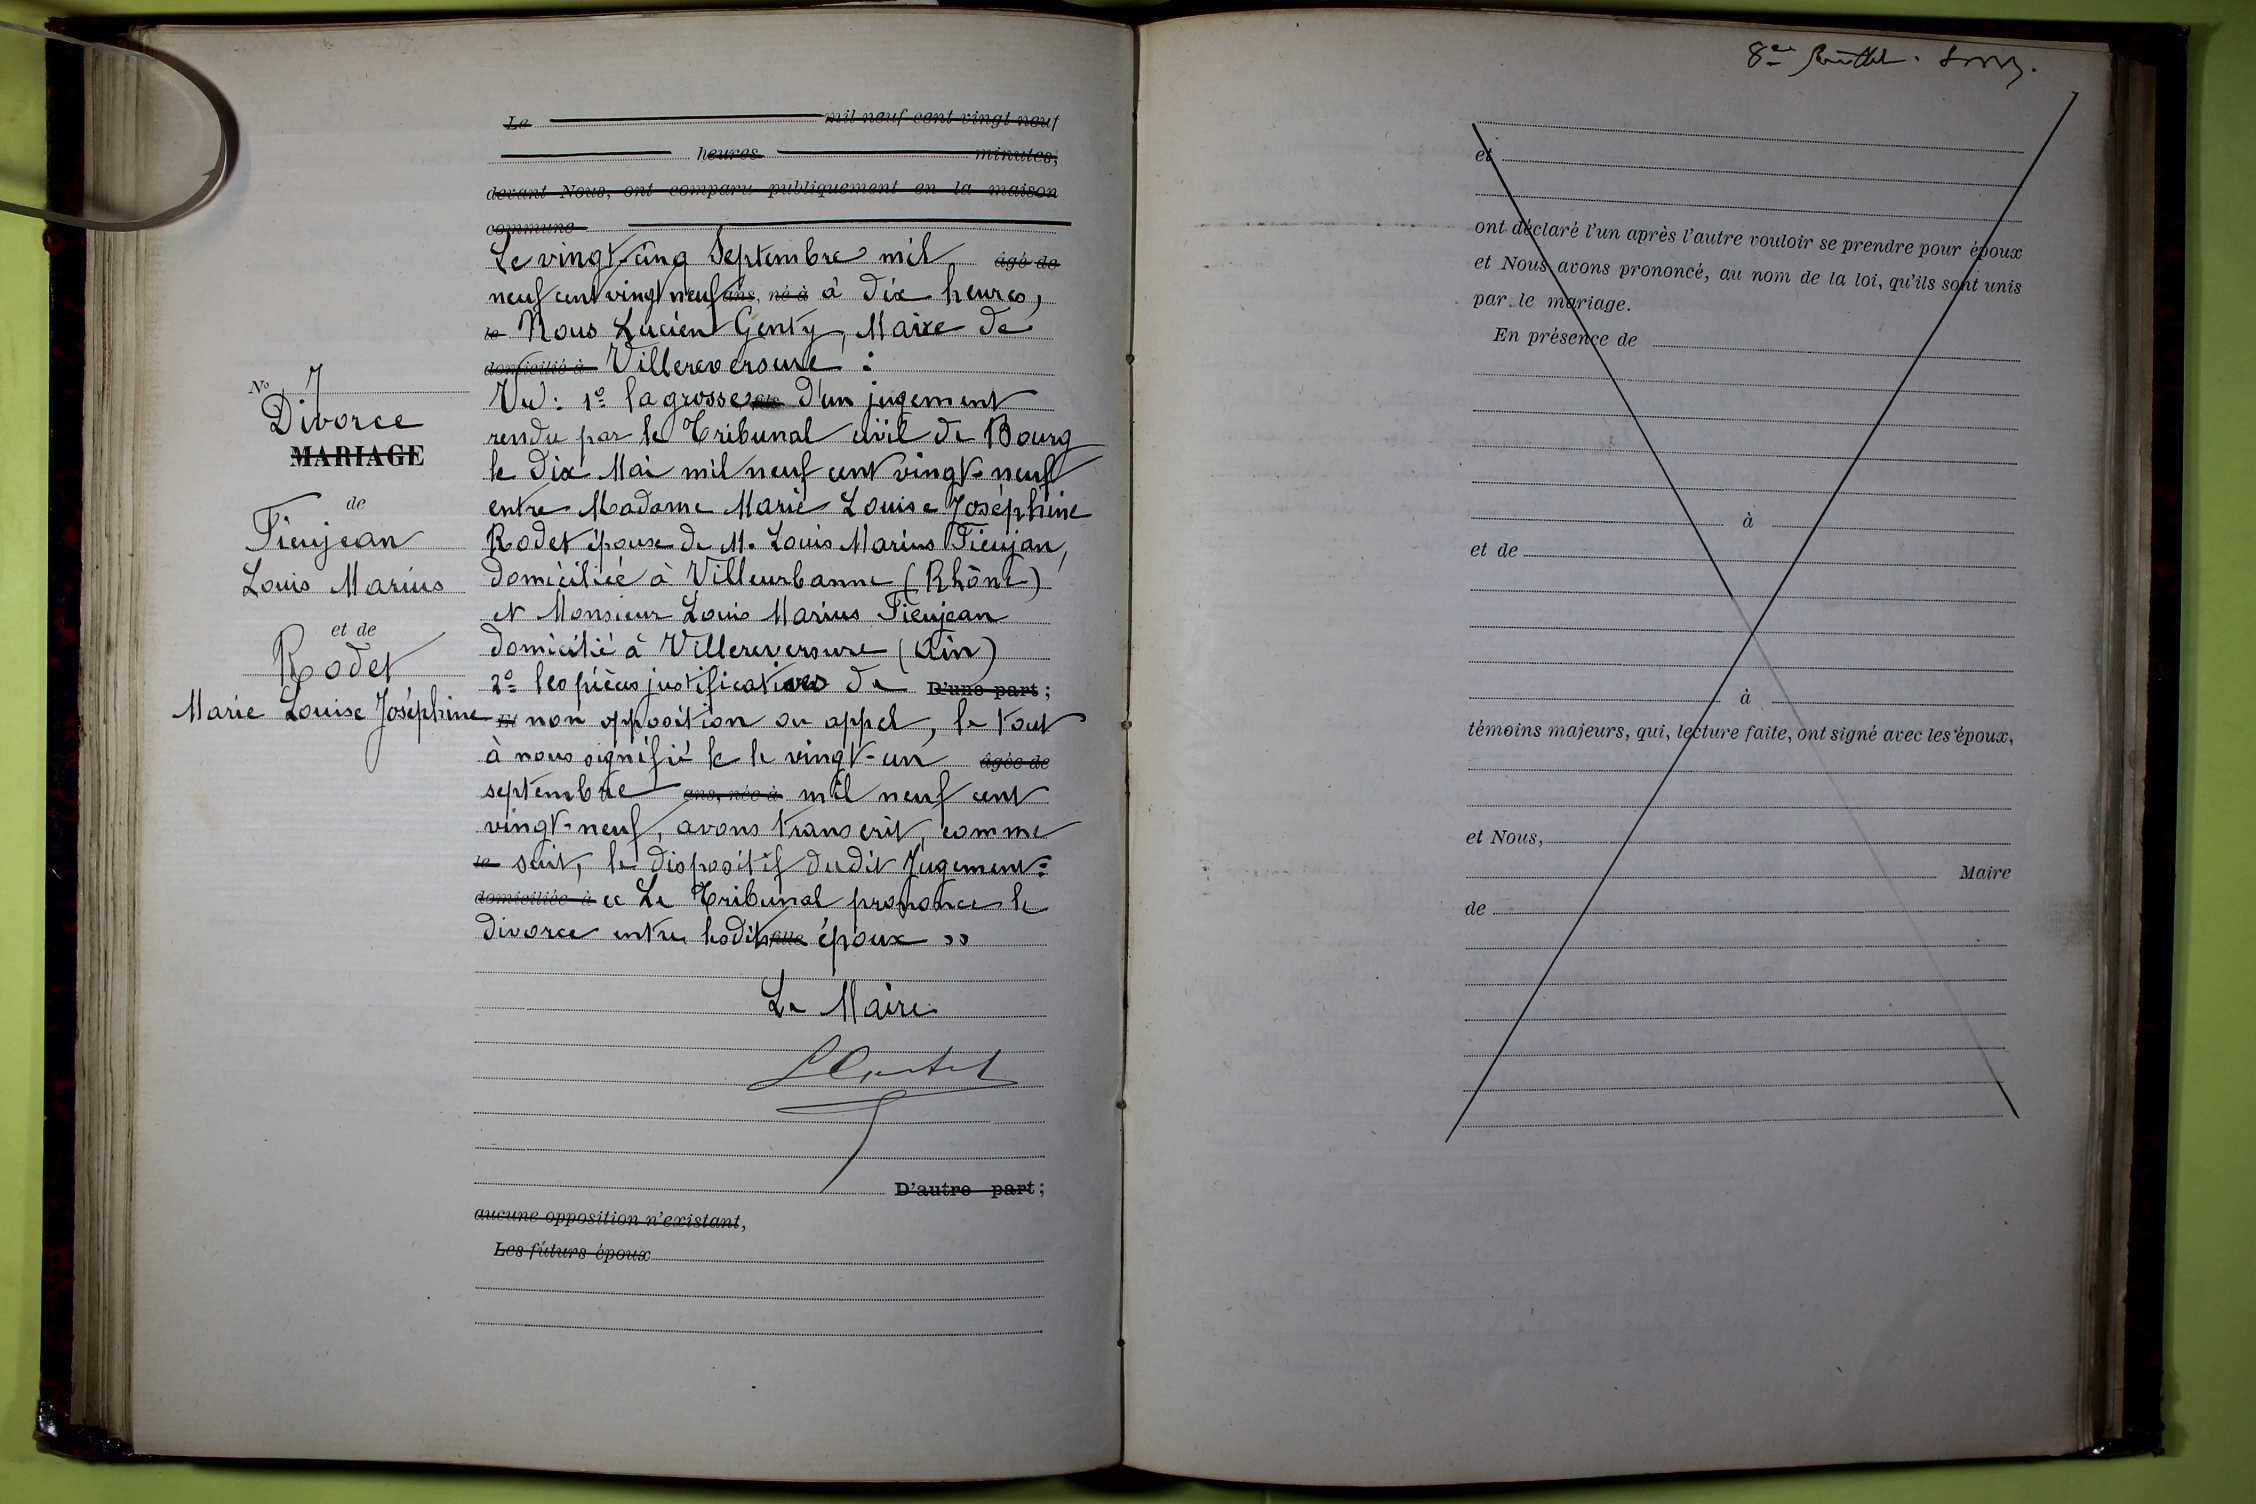 Le mil neuf cent vingt neuf
heures minutes,
devant Nous, ont comparu publiquement en la maison
commune
Le vingt-cinq Septembre mil âgé de
neuf cent vingt neuf ans, né à à dix heures,
le Nous Lucien Genty, Maire de
domicilié à Villereversure :
Vu : 1º la grosse fils d'un jugement
rendu par le Tribunal civil de Bourg
le dix Mai mil neuf cent vingt-neuf
entre Madame Marie Louise Joséphine
Rodet épouse de M. Louis Marius Fieujan,
domiciliée à Villeurbanne (Rhône)
et Monsieur Louis Marius Fieujean
domicilié à Villereversure (Ain)
2º les pièces justificatives de D'une part ;
Et non opposition ou appel, le tout
à nous signifié le le vingt-un âgée de
septembre ans, née à mil neuf cent
vingt-neuf, avons transcrit, comme
le suit, le dispositif dudit Jugement :
domiciliée à « Le Tribunal prononce le
divorce entre lesdits fille époux »
Le Maire
D'autre part ;
aucune opposition n'existant,
Les futurs époux
No 7
Divorce
MARIAGE
de
Fieujean
Louis Marius
et de
Rodet
Marie Louise Joséphine
et
ont déclaré l'un après l'autre vouloir se prendre pour époux
et Nous avons prononcé, au nom de la loi, qu'ils sont unis
par le mariage.
En présence de
à
et de
à
témoins majeurs, qui, lecture faite, ont signé avec les époux,
et Nous,
Maire
de